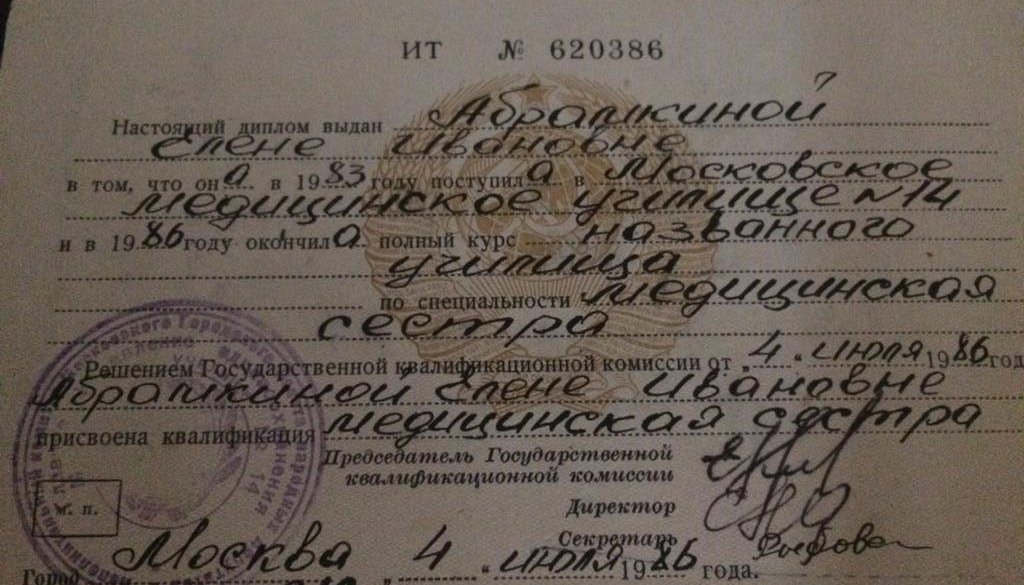 ИТ № 620386
Настоящий диплом выдан Абрамкиной
Елене Ивановне
в том, что она в 1983 году поступила в Московское
медицинское училище №14
и в 1986 году окончила полный курс названного
училища
по специальности медицинская
сестра
Решением Государственной квалификационной комиссии от „4„ июля 1986 год
Абрамкиной Елене Ивановне
присвоена квалификация медицинская сестра
Председатель Государственной
квалификационной комиссии
Директор
Секретарь
м. п.
Город Москва 4 „ июля 1986 года.